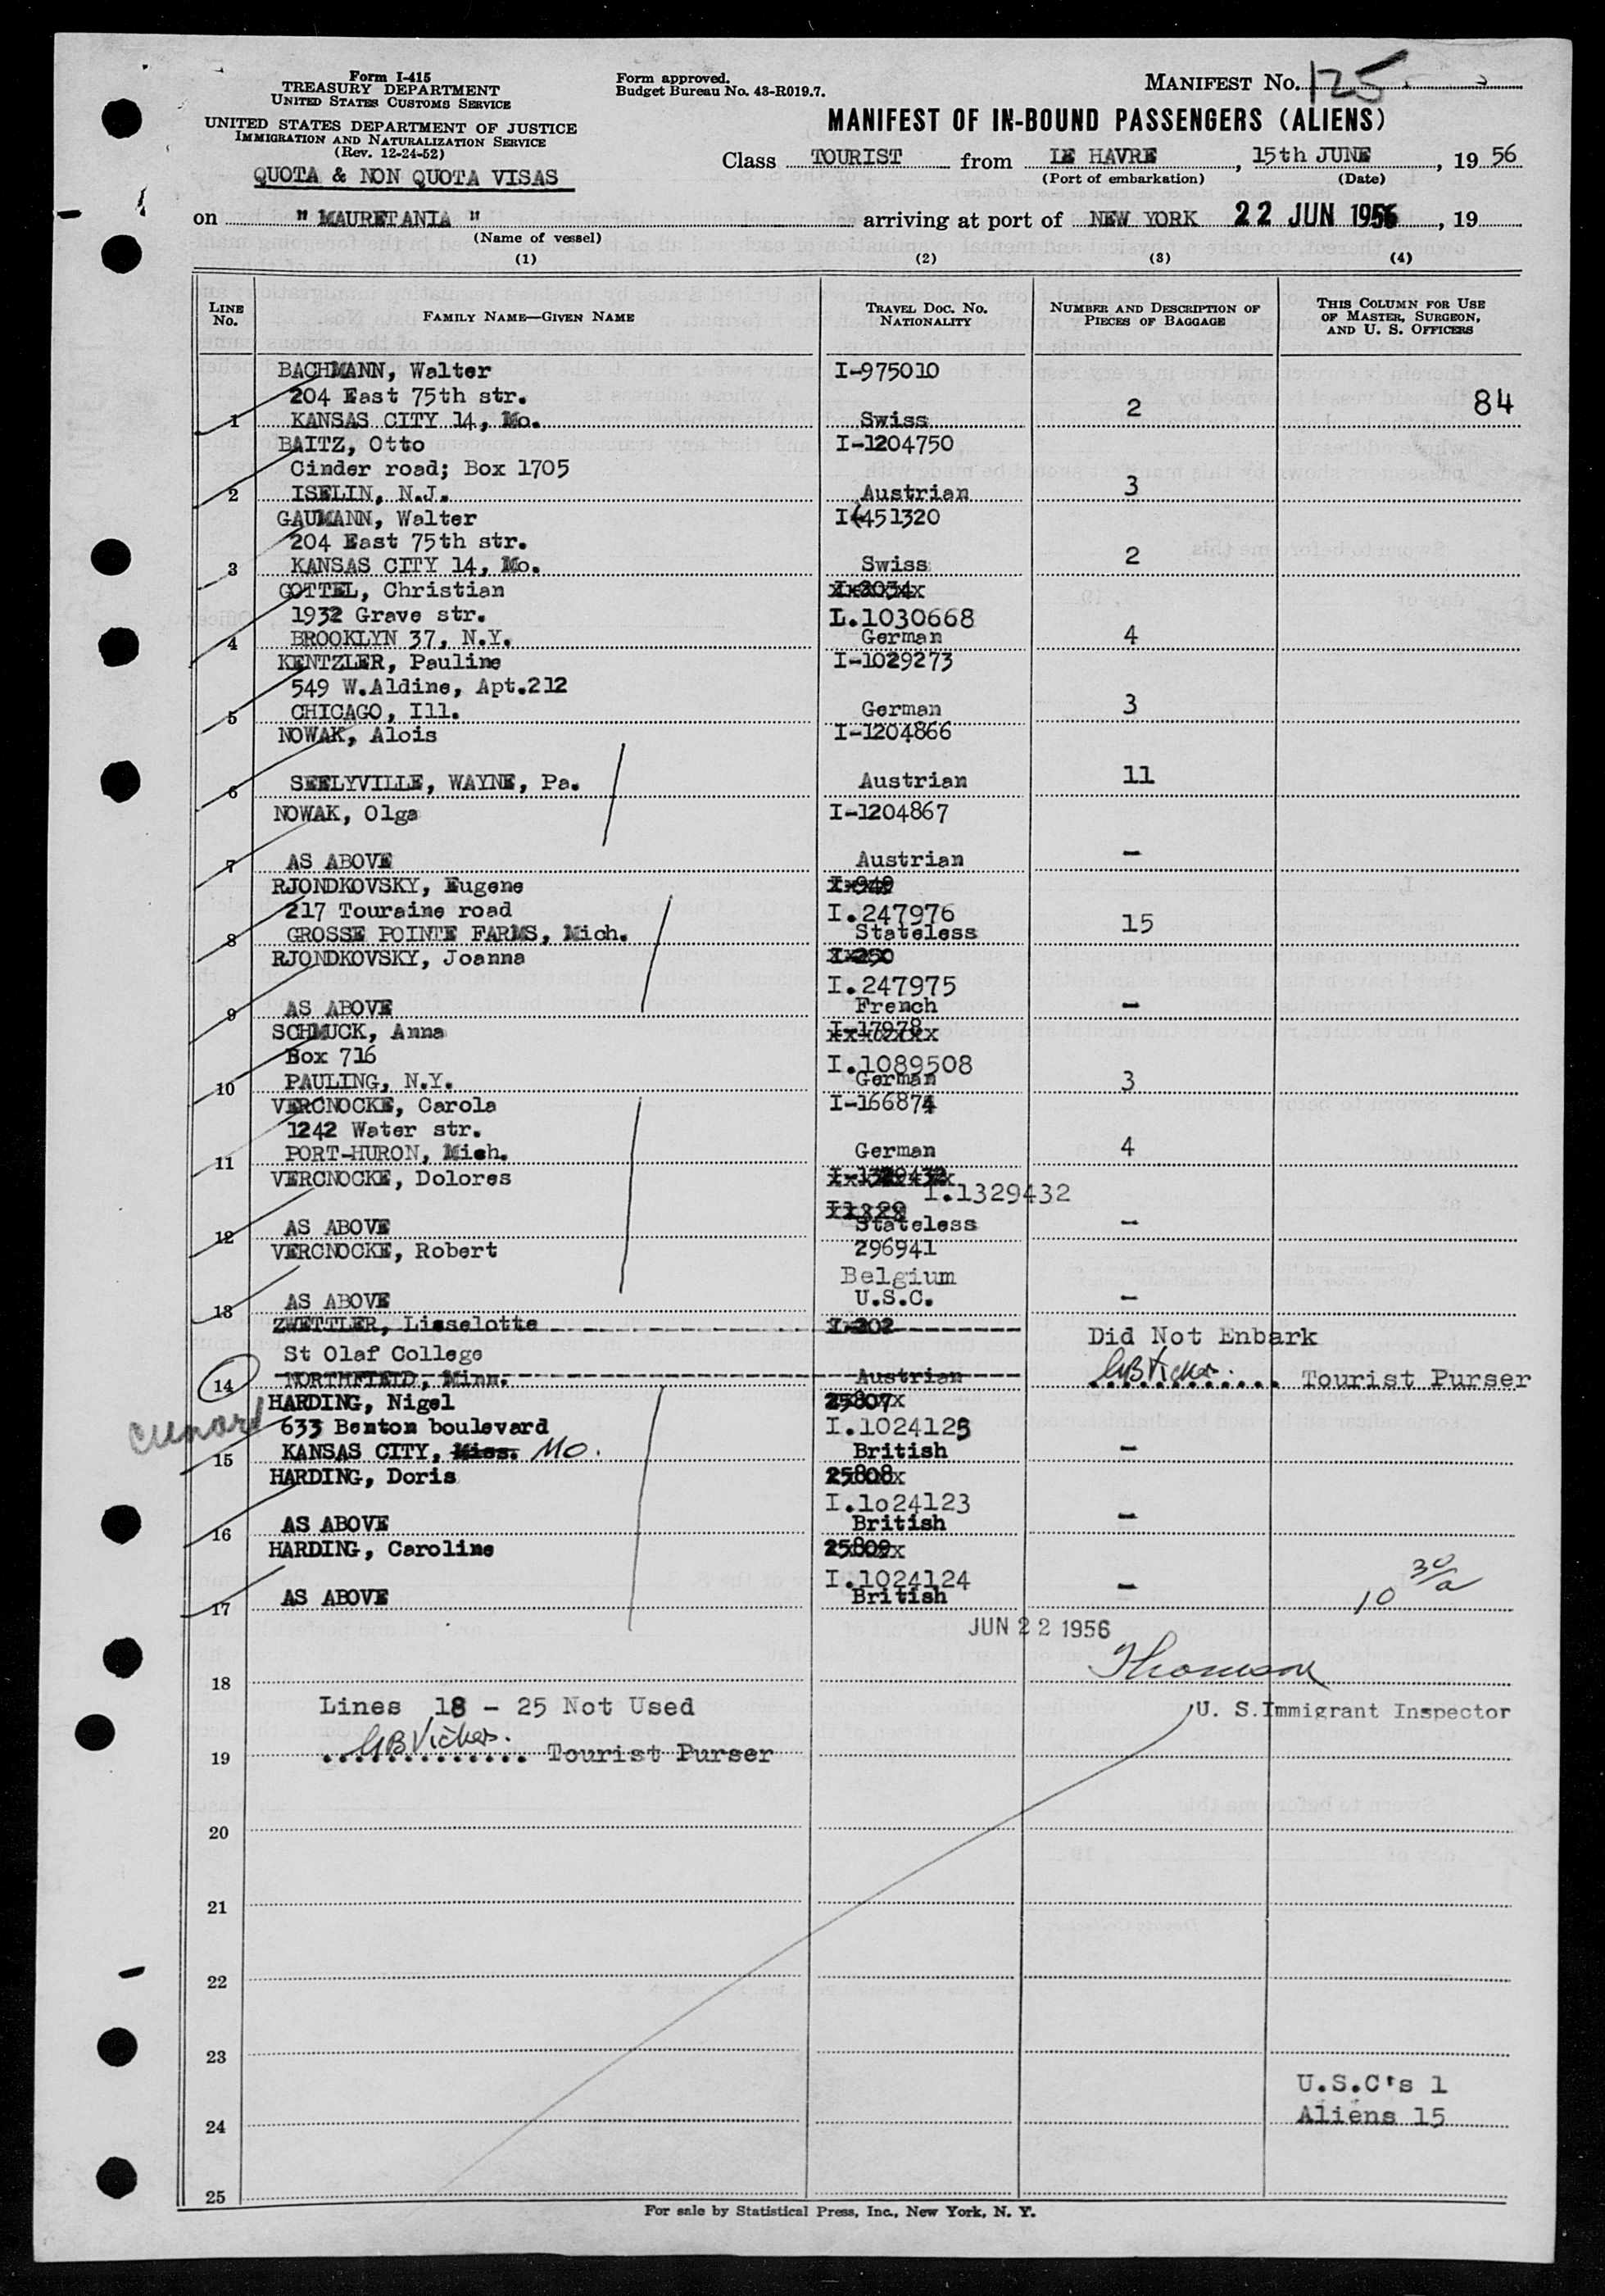 Form I-415
TREASURY DEPARTMENT
UNITED STATES CUSTOMS SERVICE
UNITED STATES DEPARTMENT OF JUSTICE
IMMIGRATION AND NATURALIZATION SERVICE
(Rev. 12-24-52)
QUOTA & NON QUOTA VISAS
Form approved.
Budget Bureau No. 43-R019.7.
MANIFEST No. 125
MANIFEST OF IN-BOUND PASSENGERS (ALIENS)
Class TOURIST from LE HAVRE, 15th JUNE, 19 56
(Port of embarkation) (Date)
on " MAURETANIA " arriving at port of NEW YORK 22 JUN 1956, 19
(Name of vessel)
(1) (2) (3) (4)
LINE No. FAMILY NAME—GIVEN NAME TRAVEL DOC. NO. NATIONALITY NUMBER AND DESCRIPTION OF PIECES OF BAGGAGE THIS COLUMN FOR USE OF MASTER, SURGEON, AND U. S. OFFICERS
BACHMANN, Walter I-975010
204 East 75th str.
1 KANSAS CITY 14, Mo. Swiss 2 84
BAITZ, Otto I-1204750
Cinder road; Box 1705
2 ISELIN, N.J. Austrian 3
GAUMANN, Walter I-451320
204 East 75th str.
3 KANSAS CITY 14, Mo. Swiss 2
GOTTEL, Christian I-2034
1932 Grave str. L.1030668
4 BROOKLYN 37, N.Y. German 4
KENTZLER, Pauline I-1029273
549 W.Aldine, Apt.212
5 CHICAGO, Ill. German 3
NOWAK, Alois I-1204866
6 SEELYVILLE, WAYNE, Pa. Austrian 11
NOWAK, Olga I-1204867
7 AS ABOVE Austrian —
RJONDKOVSKY, Eugene I-949
217 Touraine road I.247976
8 GROSSE POINTE FARMS, Mich. Stateless 15
RJONDKOVSKY, Joanna I-250
I.247975
9 AS ABOVE French —
SCHMUCK, Anna I-17978
Box 716 I.1089508
10 PAULING, N.Y. German 3
VERCNOCKE, Carola I-166874
1242 Water str.
11 PORT-HURON, Mich. German 4
VERCNOCKE, Dolores I-1329432
I.1329432
12 AS ABOVE Stateless —
VERCNOCKE, Robert 296941
Belgium
13 AS ABOVE U.S.C. —
ZWETTLER, Lieselotte I-202 Did Not Enbark
St Olaf College
14 NORTHFIELD, Minn. Austrian GBVickers. Tourist Purser
HARDING, Nigel 25807
Cunard 633 Benton boulevard I.1024125
15 KANSAS CITY, Miss. MO. British —
HARDING, Doris 25808
I.1o24123
16 AS ABOVE British —
HARDING, Caroline 25809
I.1024124
17 AS ABOVE British — 10 30/a
JUN 22 1956
18 Thomson
Lines 18 - 25 Not Used U. S. Immigrant Inspector
19 GBVickers. Tourist Purser
20
21
22
23
U.S.C's 1
24 Aliens 15
25
For sale by Statistical Press, Inc., New York, N. Y.